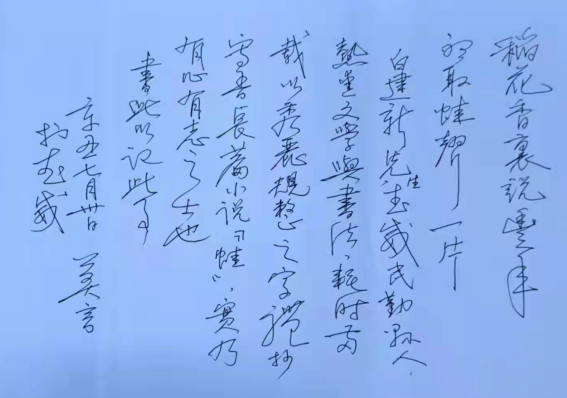 稻花香裏說豐年
听取蛙聲一片
白建新先生武威民勤縣人
熱愛文學與書法,耗时两
載以秀麗規整之字體抄
寫吾長篇小说「蛙」,實乃
有心有志之士也
書此以记此事
辛丑七月廿日 莫言
於武威